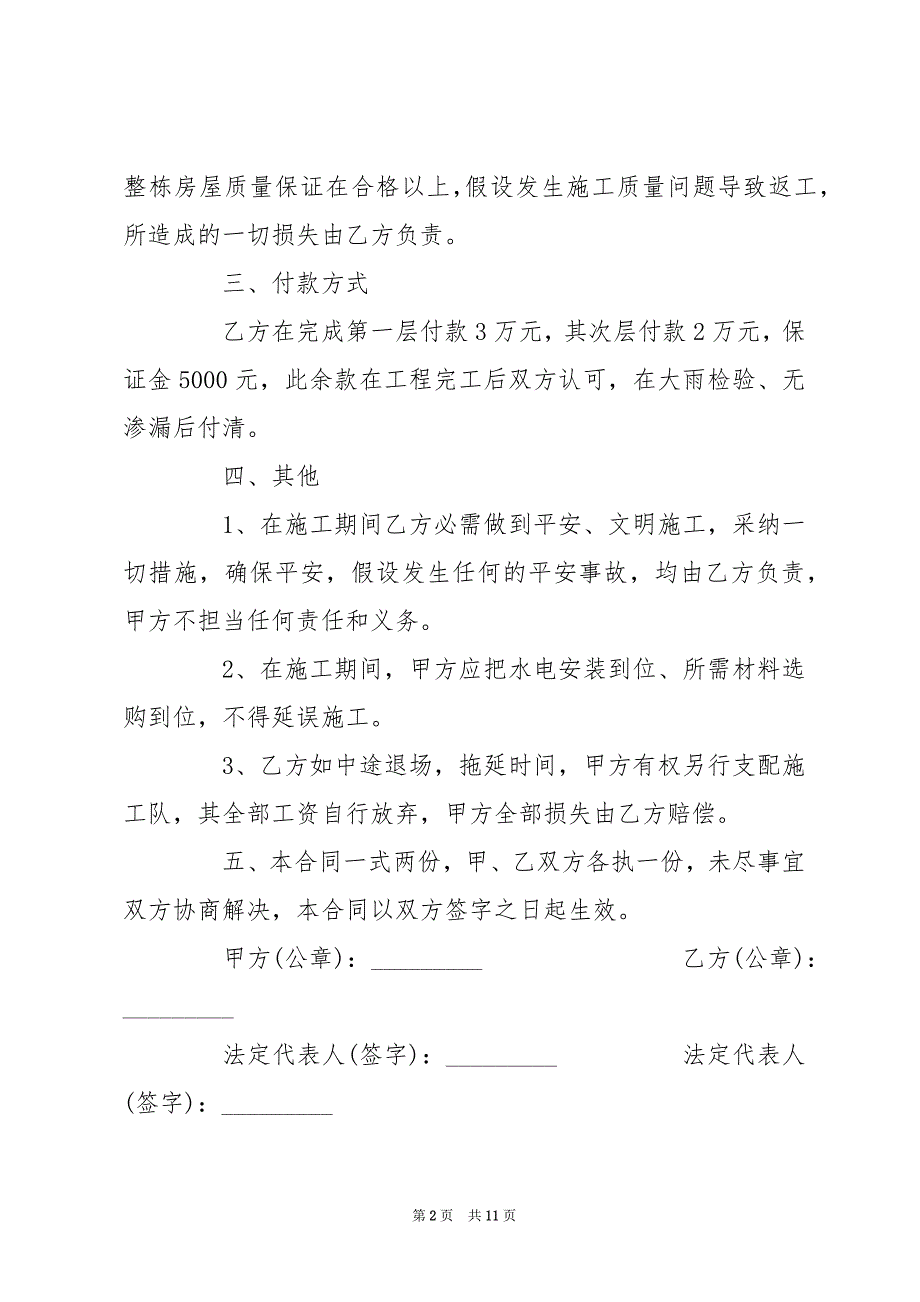 整栋房屋质量保证在合格以上，假设发生施工质量问题导致返工，
所造成的一切损失由乙方负责。
三、付款方式
乙方在完成第一层付款 3 万元，其次层付款 2 万元，保
证金 5000 元，此余款在工程完工后双方认可，在大雨检验、无
渗漏后付清。
四、其他
1、在施工期间乙方必需做到平安、文明施工，采纳一
切措施，确保平安，假设发生任何的平安事故，均由乙方负责，
甲方不担当任何责任和义务。
2、在施工期间，甲方应把水电安装到位、所需材料选
购到位，不得延误施工。
3、乙方如中途退场，拖延时间，甲方有权另行支配施
工队，其全部工资自行放弃，甲方全部损失由乙方赔偿。
五、本合同一式两份，甲、乙双方各执一份，未尽事宜
双方协商解决，本合同以双方签字之日起生效。
甲方(公章)：_________ 乙方(公章)：
_________
法定代表人(签字)：_________ 法定代表人
(签字)：_________
第 2 页 共 11 页